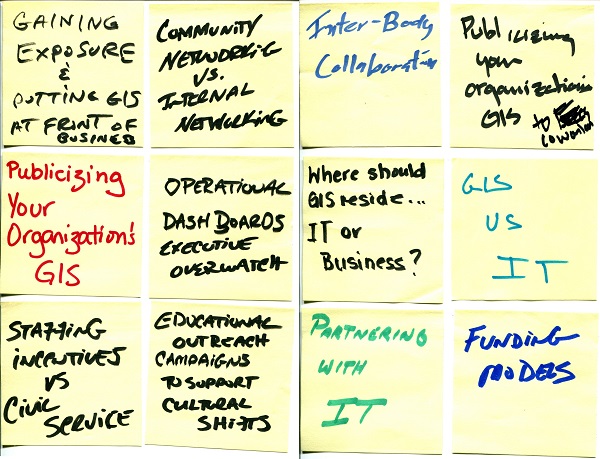 GAINING
EXPOSURE
&
PUTTING GIS
AT FRONT OF
BUSINESS
COMMUNITY
NETWORKING
VS.
INTERNAL
NETWORKING
Inter-Body
Collaboration
Publicizing
your
organizations
GIS
to
Publicizing
Your
Organization's
GIS
OPERATIONAL
DASHBOARDS
EXECUTIVE
OVERWATCH
Where should
GIS reside...
IT or
Business?
GIS
VS
IT
STAFFING
INCENTIVES
VS
CIVIL
SERVICE
EDUCATIONAL
OUTREACH
CAMPAIGNS
TO SUPPORT
CULTURAL
SHIFTS
PARTNERING
WITH
IT
FUNDING
MODELS